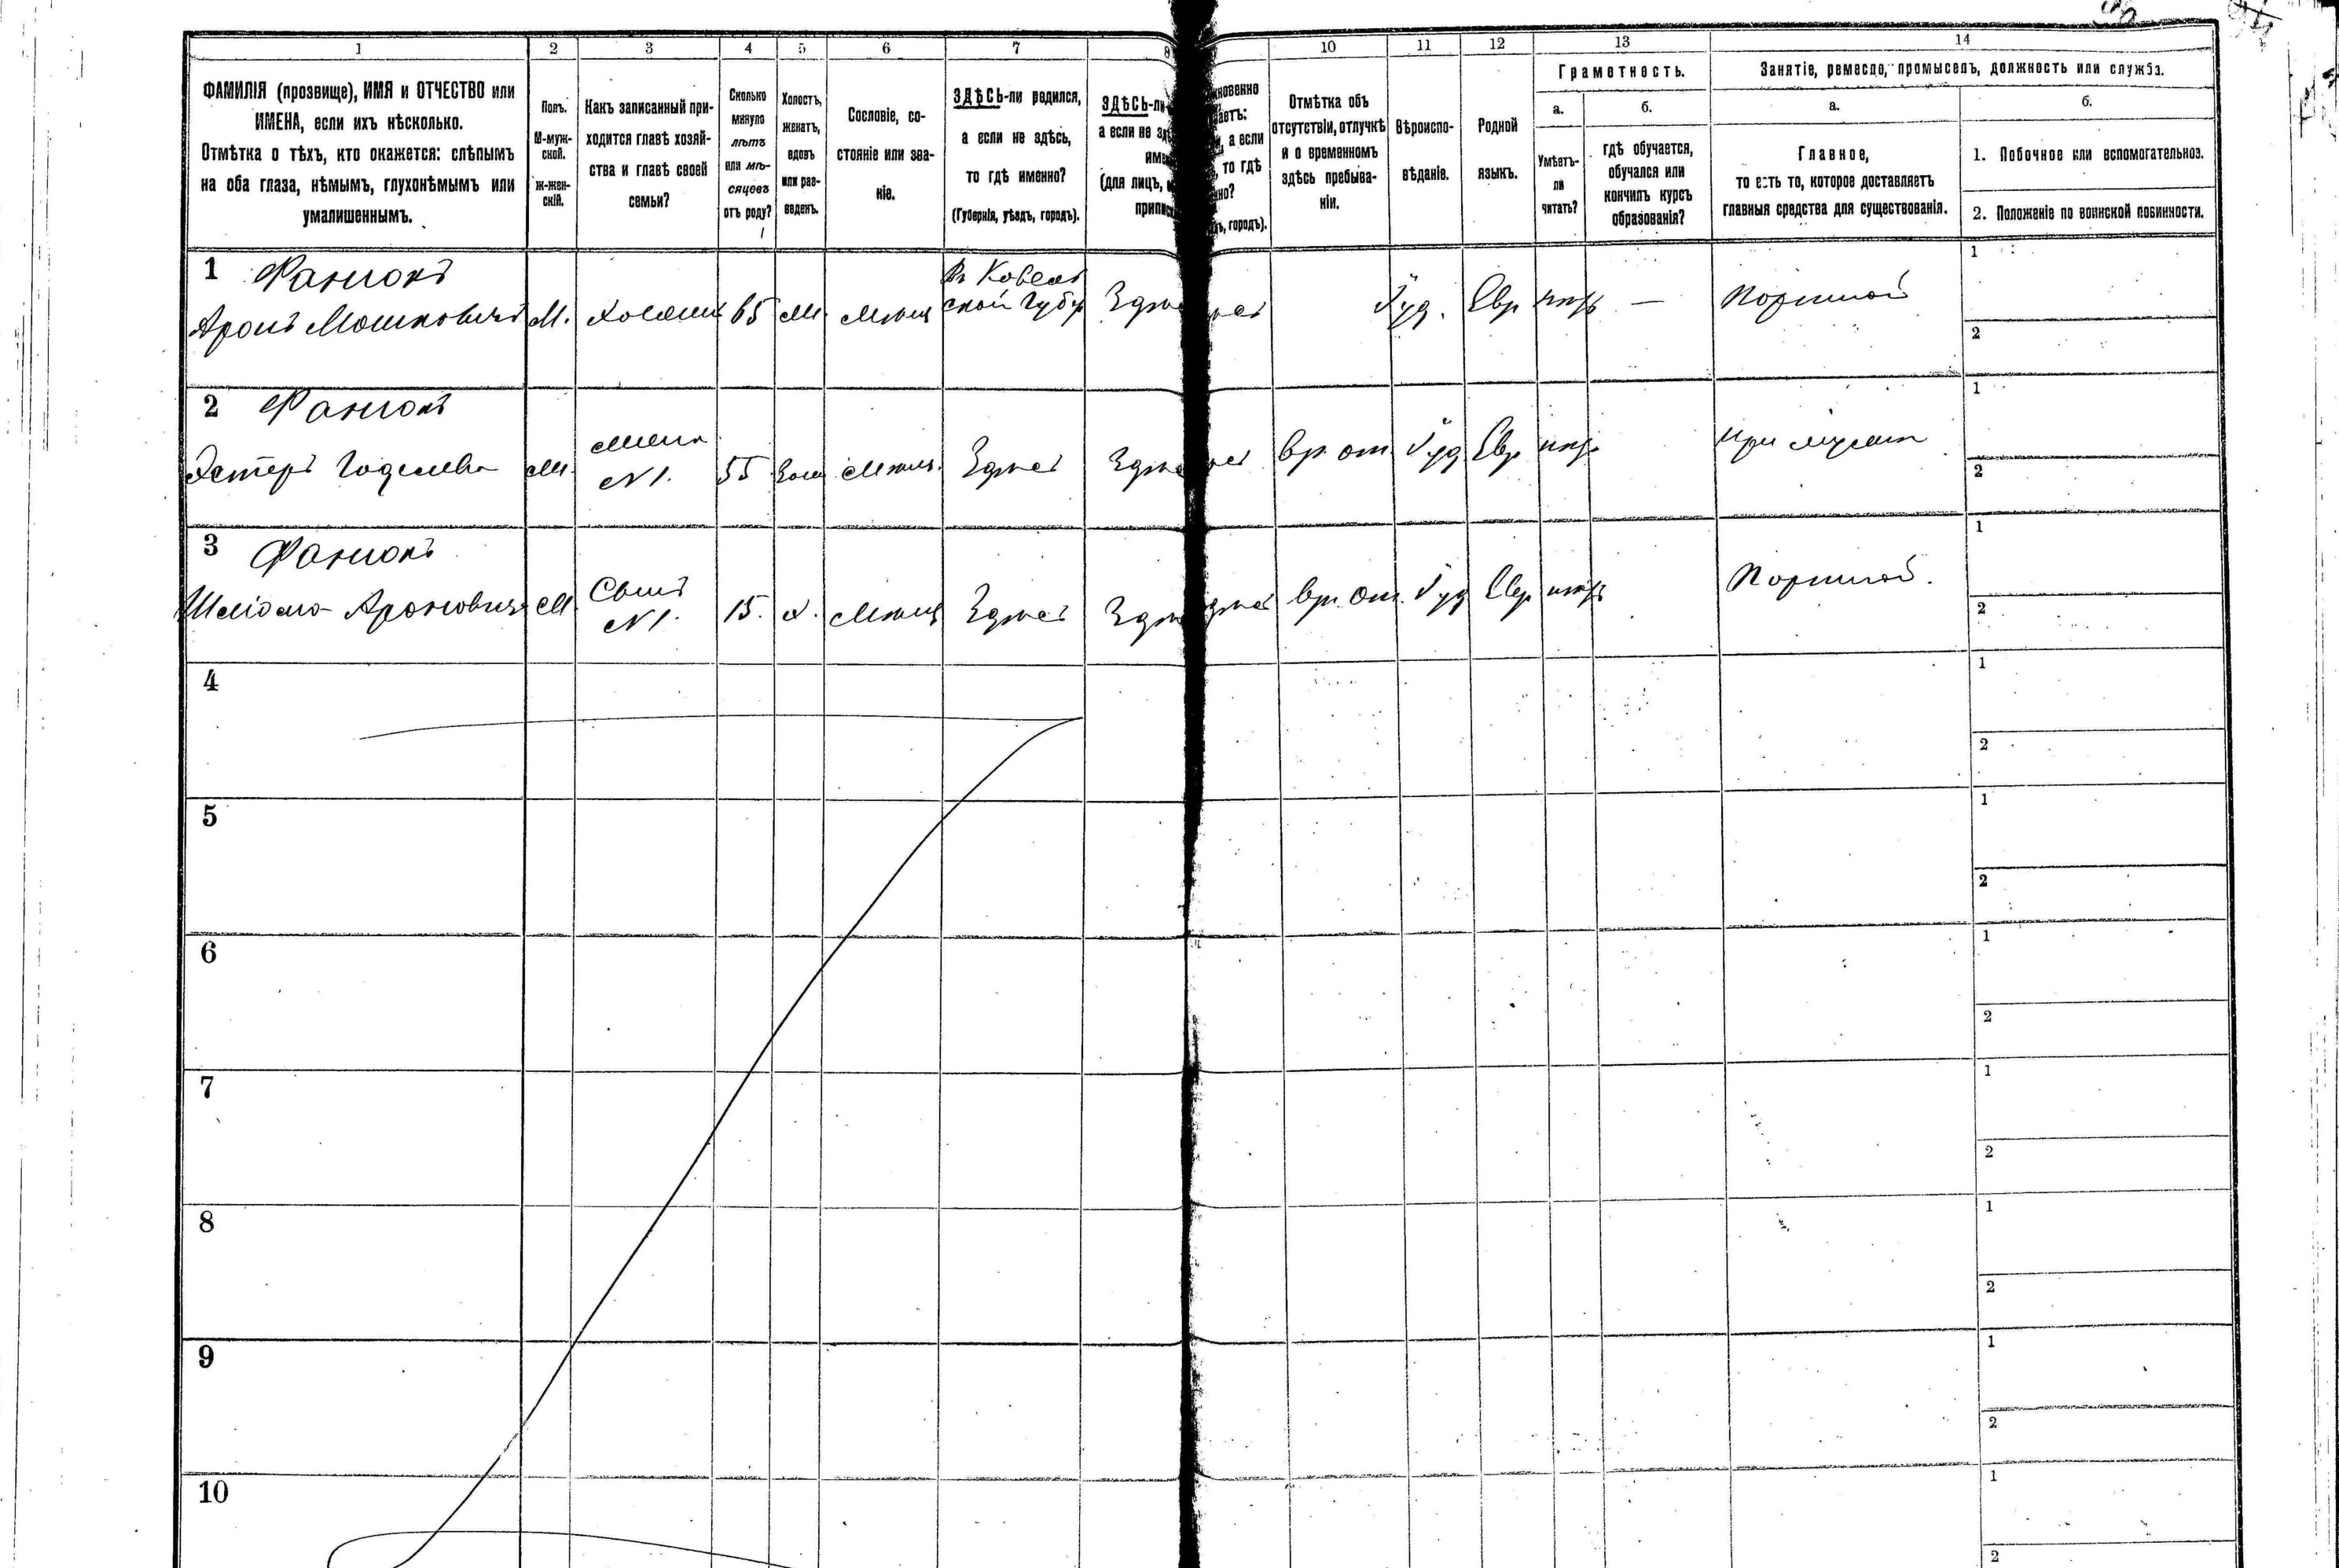 1
2
3
4
5
6
7
8
10
11
12
13
14
ФАМИЛІЯ (прозвище), ИМЯ и ОТЧЕСТВО или
ИМЕНА, если ихъ нѣсколько.
Отмѣтка о тѣхъ, кто окажется: слѣпымъ
на оба глаза, нѣмымъ, глухонѣмымъ или
умалишеннымъ.
Полъ.
М-муж-
ской.
Ж-жен-
скій.
Какъ записанный при-
ходится главѣ хозяй-
ства и главѣ своей
семьи?
Сколько
минуло
лѣтъ
или мѣ-
сяцевъ
отъ роду?
Холостъ,
женатъ,
вдовъ
или раз-
веденъ.
Сословіе, со-
стояніе или зва-
ніе.
ЗДѢСЬ-ли родился,
а если не здѣсь,
то гдѣ именно?
(Губернія, уѣздъ, городъ).
ЗДѢСЬ-ли
а если не
(для лицъ,
а если
то гдѣ
городъ).
Отмѣтка объ
отсутствіи, отлучкѣ
и о временномъ
здѣсь пребыва-
ніи.
Вѣроиспо-
вѣданіе.
Родной
языкъ.
Грамотность.
а.
б.
Умѣетъ-
ли
читать?
гдѣ обучается,
обучался или
кончилъ курсъ
образованія?
Занятіе, ремесло, промыселъ, должность или служба.
а.
б.
Главное,
то есть то, которое доставляетъ
главныя средства для существованія.
1. Побочное или вспомогательное.
2. Положеніе по воинской повинности.
1 Фанюкъ
Аронъ Мошковичъ М. 65 Здѣсь Іуд. Евр — Портной
1
2
2 Фанюкъ
Эстеръ М. N 1. 55 Здѣсь Здѣсь вр. от. Іуд Евр при мужѣ
1
2
3 Фанюкъ
Шліома Ароновичъ М Сынъ N 1. 15. Х. Здѣсь Здѣсь вр. от. Іуд Евр Портной.
1
2
4
1
2
5
1
2
6
1
2
7
1
2
8
1
2
9
1
2
10
1
2